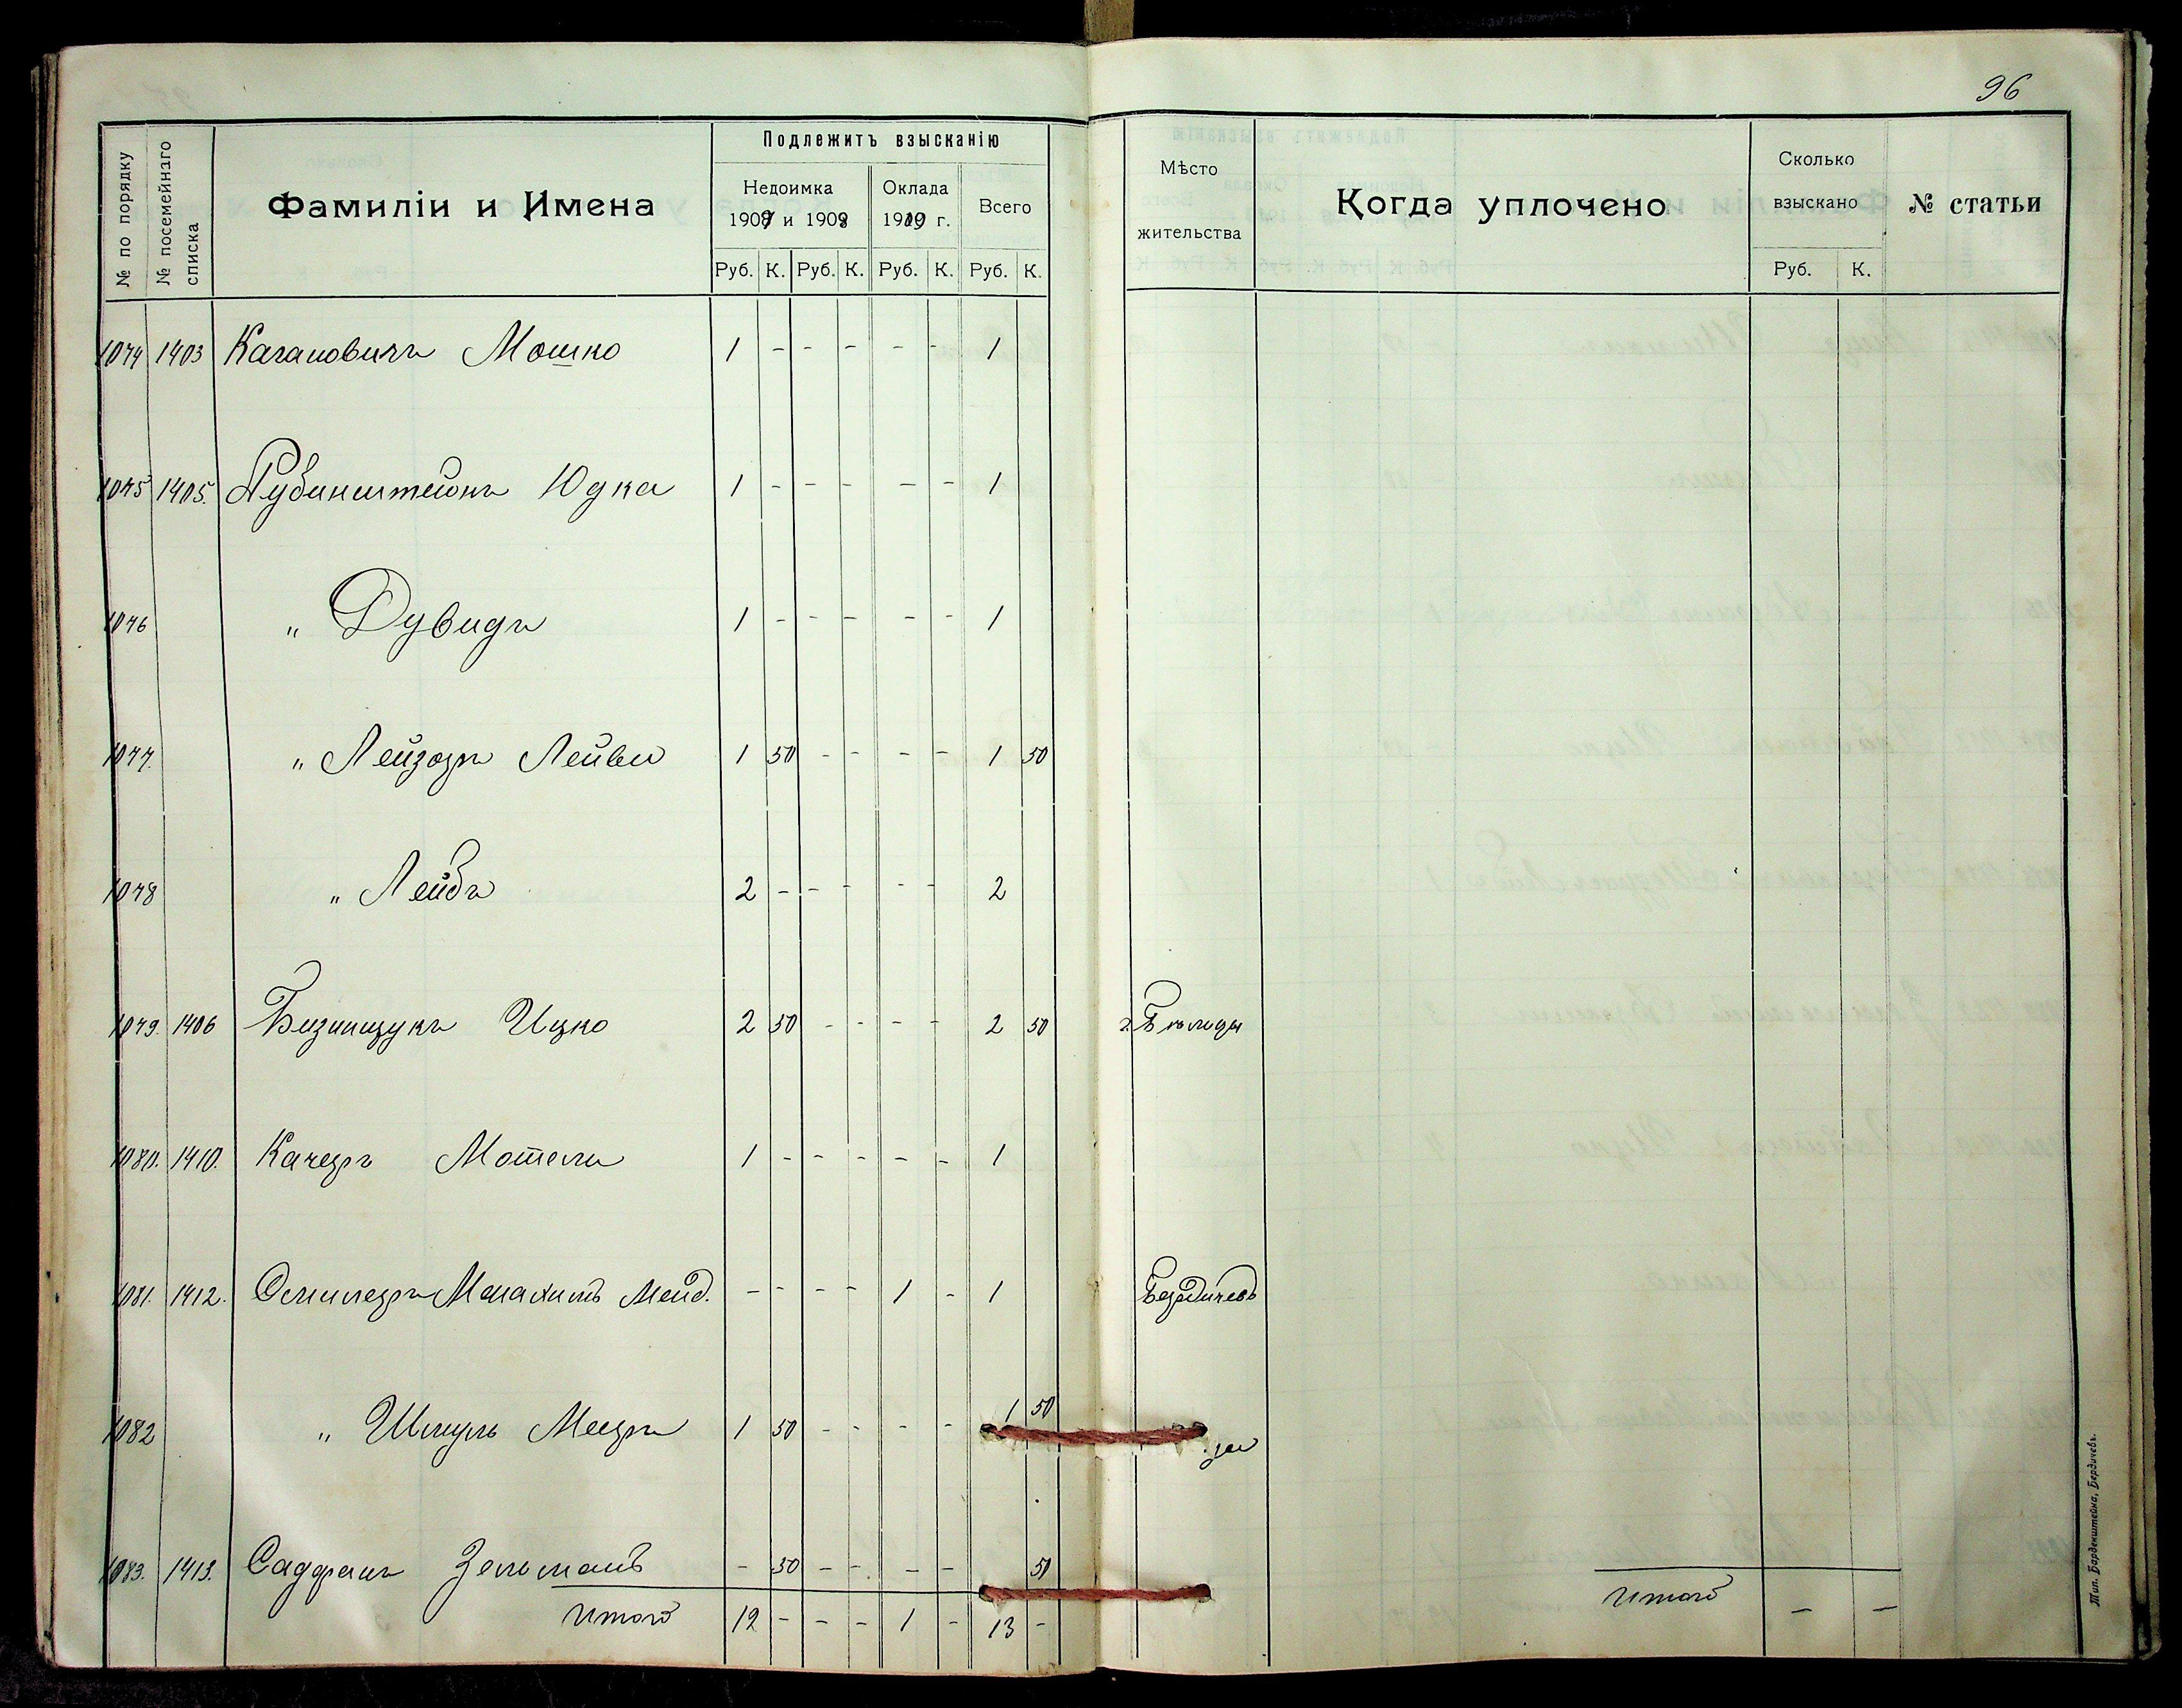 96
Подлежитъ взысканію
№ по порядку
№ посемейнаго списка
Фамиліи и Имена
Недоимка
1909 и 1908
Оклада
1910 г.
Всего
Руб. К. Руб. К. Руб. К. Руб. К.
Мѣсто
жительства
Когда уплочено
Сколько
взыскано
Руб. К.
№ статьи
1074 1403 Кагановичъ Мошко 1 - - - - - 1
1075 1405. Рубинштейнъ Юдка 1 - - - - - 1
1076 " Дувидъ 1 - - - - - 1
1077. " Лейзоръ Лейви 1 50 - - - - 1 50
1078 " Лейбъ 2 - - - - - 2
1079. 1406 Бизинщукъ Ицко 2 50 - - - - 2 50
1080. 1410. Качеръ Мотель 1 - - - - - 1
1081. 1412. Менахимъ Мейд. - - - - 1 - 1 Бердичевъ
1082 " Шмуль Мееръ 1 50 - - - - 1 50
1083. 1413. Зельманъ - 50 - - - - 50
Итого 12 - - - 1 - 13 -
Итого - -
Тип. Барденштейна, Бердичевъ.